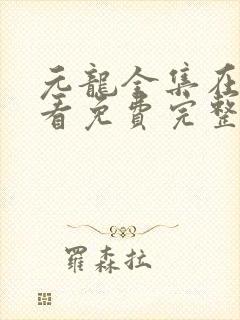 元龍全集在
看免費完整
羅森拉